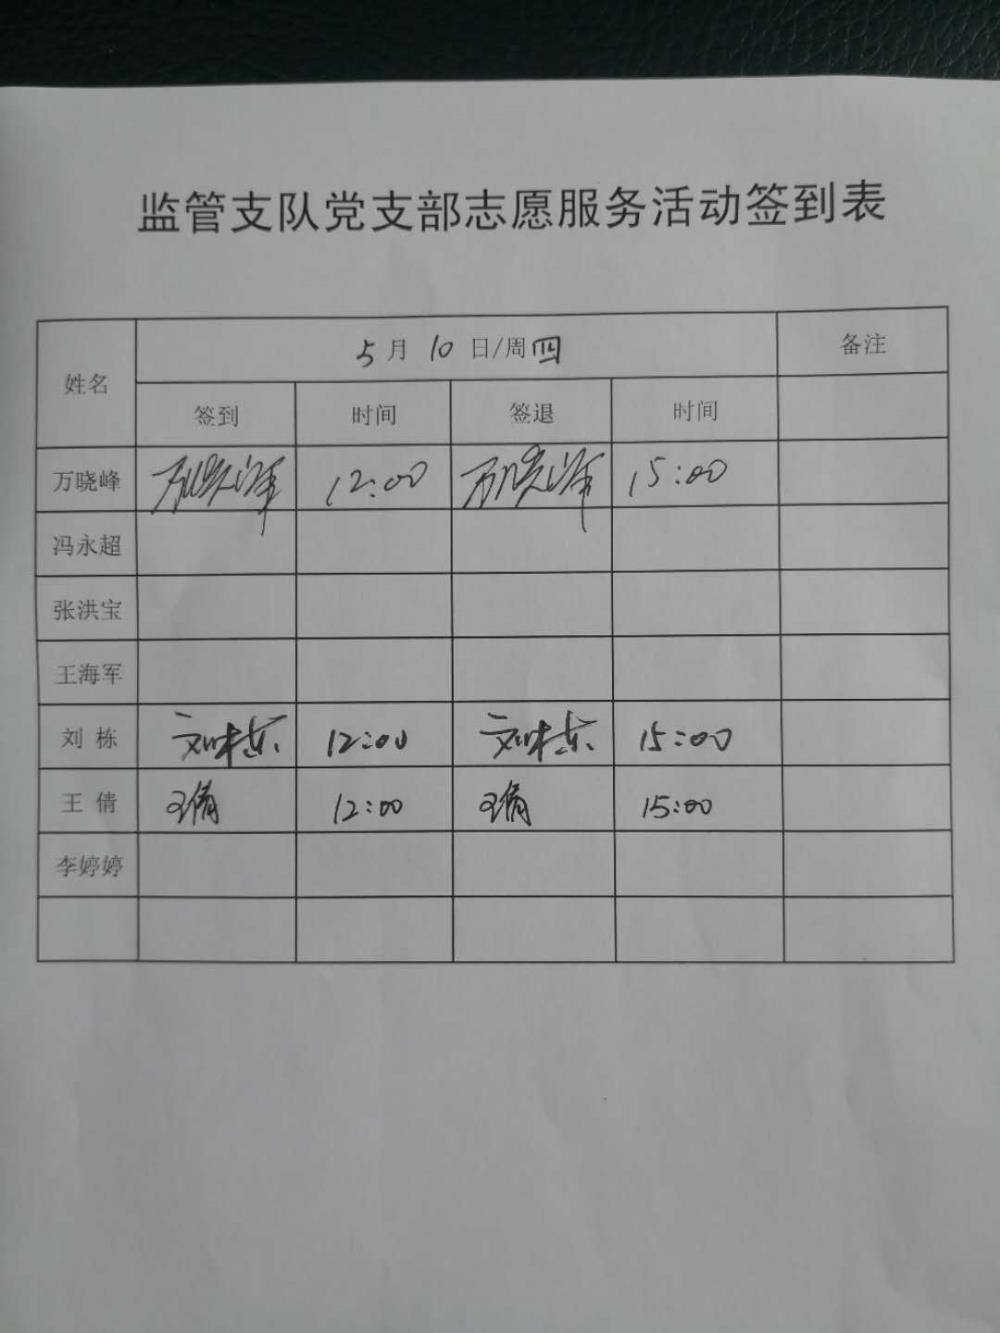 监管支队党支部志愿服务活动签到表
姓名 5月10日/周四 备注
签到 时间 签退 时间
万晓峰 万晓峰 12:00 万晓峰 15:00
冯永超
张洪宝
王海军
刘 栋 刘栋 12:00 刘栋 15:00
王 倩 王倩 12:00 王倩 15:00
李婷婷